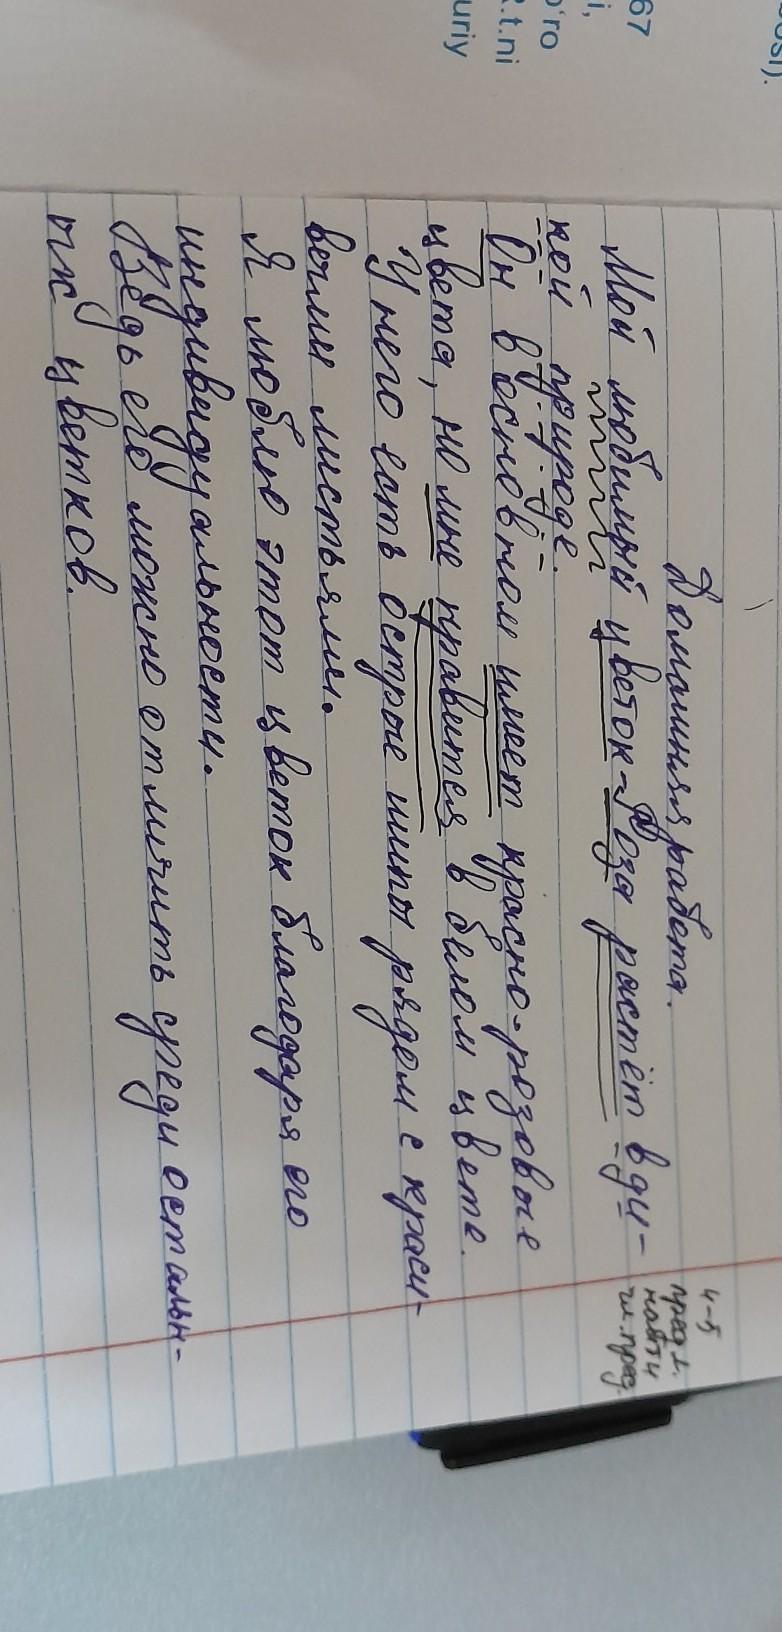 67
i,
o'ro
R.t.ni
uriy
osi).
4-5
пред.
найти
гл. пред.
Домашняя работа.
Мой любимый цветок-Роза растёт в ди-
кой природе.
Он в основном имеет красно-розовые
цвета, но мне нравится в белом цвете.
У него есть острые шипы рядом с краси-
выми листьями.
Я люблю этот цветок благодаря его
индивидуальности.
Ведь его можно отличить среди остальн-
ых цветков.